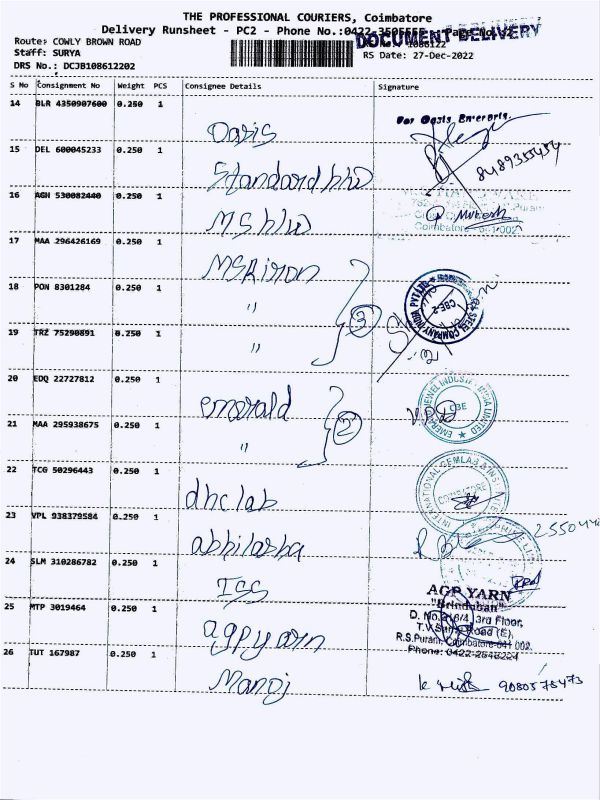 THE PROFESSIONAL COURIERS, Coimbatore
Delivery Runsheet - PC2 - Phone No.:0422
DOCUMENT DELIVERY
Route: COWLY BROWN ROAD
1086122
Staff: SURYA
RS Date: 27-Dec-2022
DRS No.: DCJB108612202
S No Consignment No Weight PCS Consignee Details Signature
14 BLR 4350907600 0.250 1
For Oasis
Oasis
15 DEL 600045233 0.250 1
Standard
16 AGH 530082440 0.250 1
Mukesh
Coimbatore
17 MAA 296426169 0.250 1
18 PON 8301284 0.250 1
"
3
STEEL COMPANY INDIA PVT LTD
CBE-2
19 TRZ 75290891 0.250 1
"
20 EDQ 22727812 0.250 1
emerald
EMERALD JEWEL INDUSTRY INDIA LIMITED
CBE
21 MAA 295938675 0.250 1
"
2
22 TCG 50296443 0.250 1
INTERNATIONAL GEMLAB
COIMBATORE
dhc lab
23 VPL 938379584 0.250 1
abhilasha
24 SLM 310286782 0.250 1
ISS
AGP YARN
"Brindaban"
D. No. 3rd Floor,
Road (E),
R.S.Puram, Coimbatore-641 002.
Phone: 0422-
25 MTP 3019464 0.250 1
agpyarn
26 TUT 167987 0.250 1
Manoj
9080575473